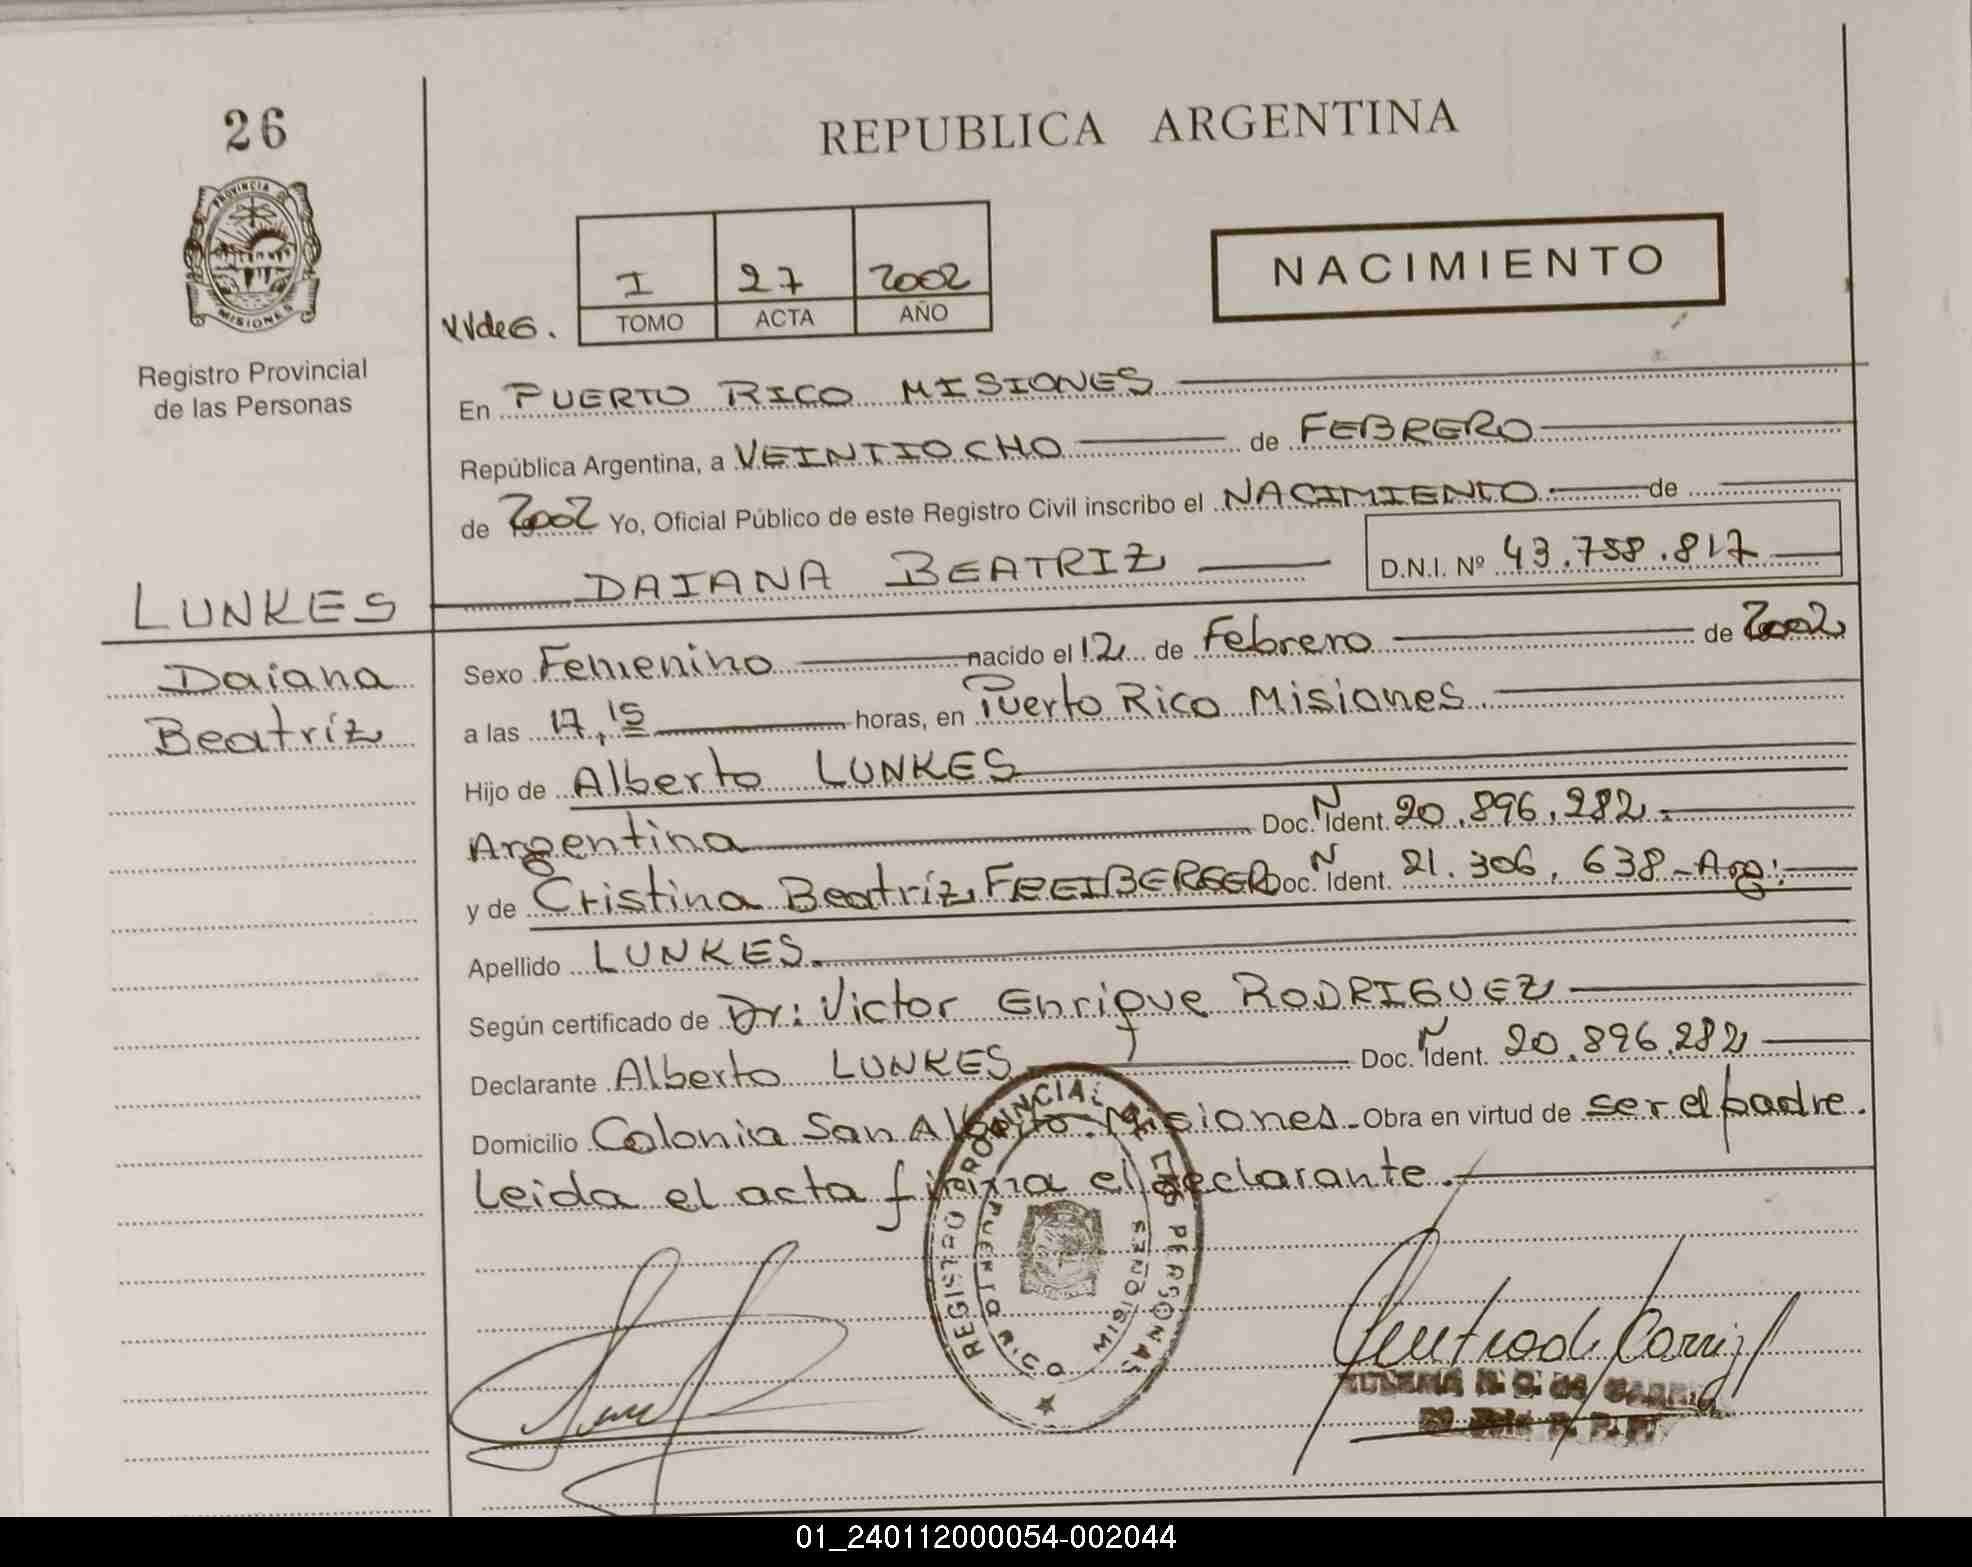 26
REPUBLICA ARGENTINA
PROVINCIA DE
MISIONES
Registro Provincial
de las Personas
I 27 2002
TOMO ACTA AÑO
NACIMIENTO
En PUERTO RICO MISIONES
República Argentina, a VEINTIOCHO de FEBRERO
de 2002 Yo, Oficial Público de este Registro Civil inscribo el NACIMIENTO de
DAIANA BEATRIZ D.N.I. Nº 43.758.817
LUNKES
Daiana
Beatríz
Sexo Femenino nacido el 12 de Febrero de 2002
a las 17,15 horas, en Puerto Rico Misiones
Hijo de Alberto LUNKES
Argentina Doc. N Ident. 20.896.282.
y de Cristina Beatríz FREIBERGER Doc. N Ident. 21.306.638 - Arg:
Apellido LUNKES.
Según certificado de Dr: Victor Enrique RODRIGUEZ
Declarante Alberto LUNKES Doc. N Ident. 20.896.282
Domicilio Colonia San Alberto Misiones. Obra en virtud de ser el padre.
Leida el acta firma el declarante.
REGISTRO PROVINCIAL DE LAS PERSONAS
PUERTO RICO MISIONES
01_240112000054-002044